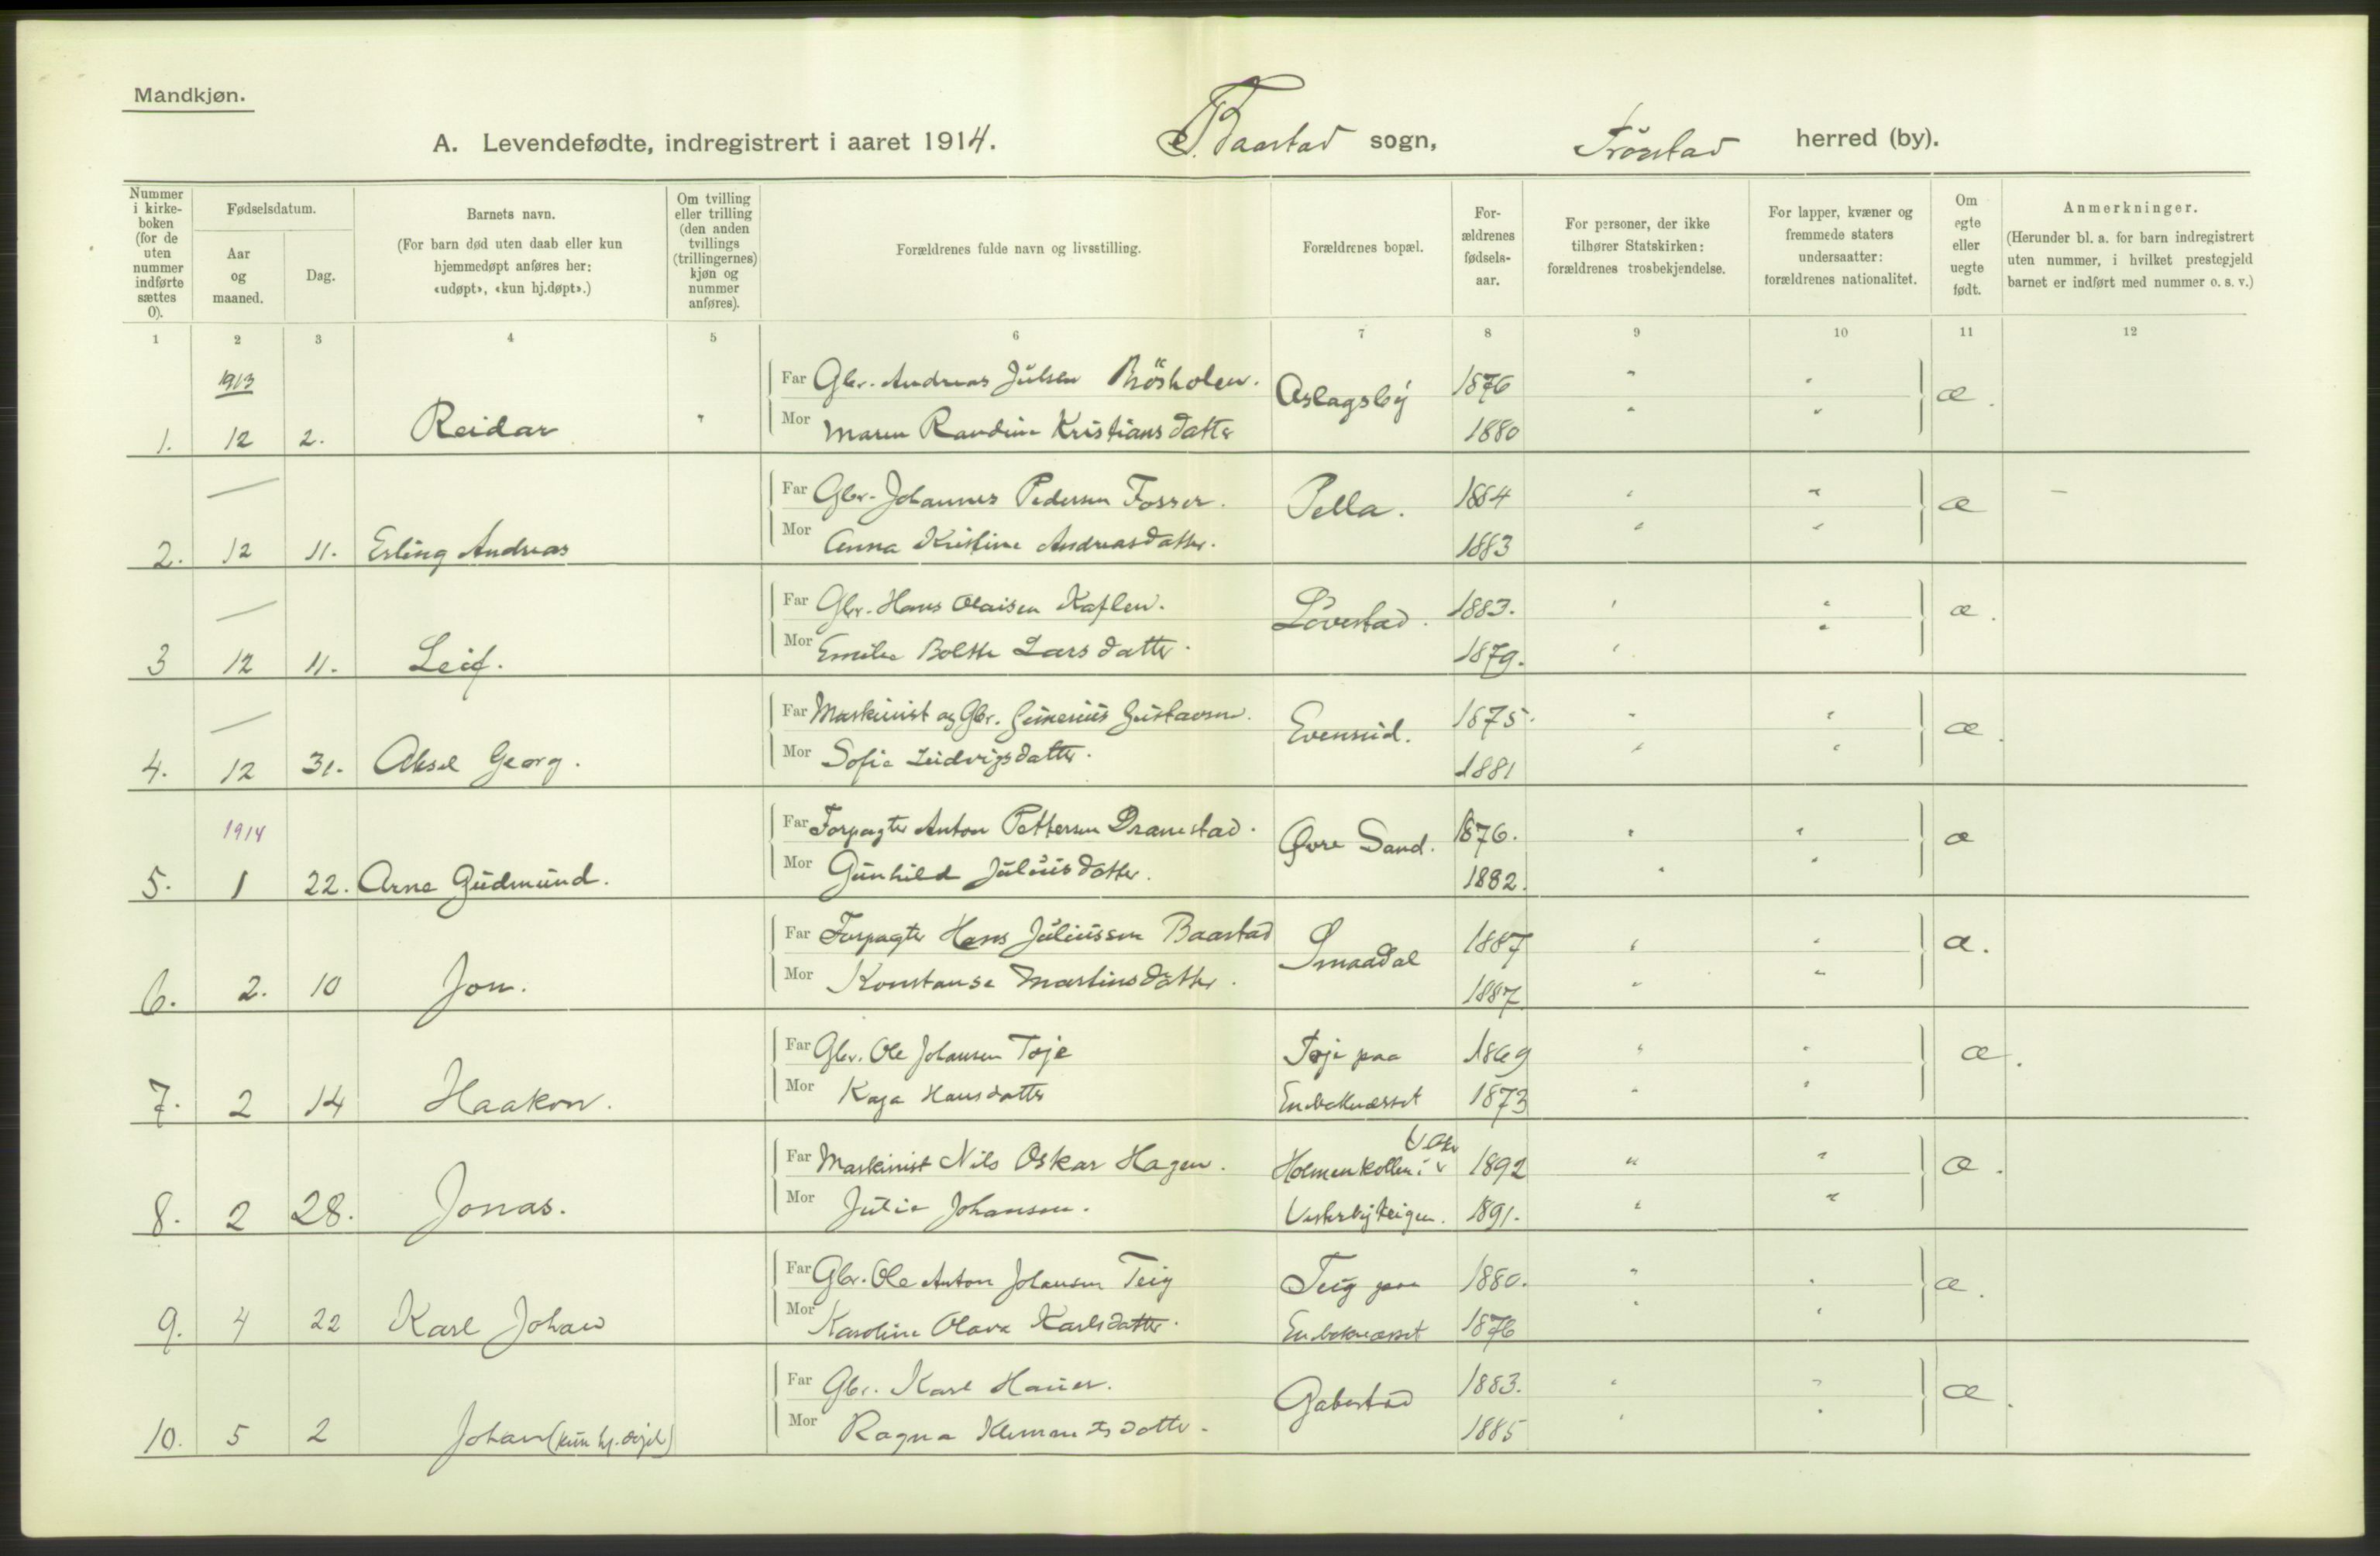 Mandkjøn.
A. Levendefødte, indregistrert i aaret 1914. Baastad sogn, Trøgstad herred (by).
Nummer i kirke-boken (for de uten nummer indførte sættes 0).
Fødselsdatum.
Aar og maaned.
Dag.
Barnets navn.
(For barn død uten daab eller kun hjemmedøpt anføres her: «udøpt», «kun hj.døpt».)
Om tvilling eller trilling (den anden tvillings (trillingernes) kjøn og nummer anføres).
Forældrenes fulde navn og livsstilling.
Forældrenes bopæl.
For-ældrenes fødsels-aar.
For personer, der ikke tilhører Statskirken: forældrenes trosbekjendelse.
For lapper, kvæner og fremmede staters undersaatter: forældrenes nationalitet.
Om egte eller uegte født.
Anmerkninger.
(Herunder bl. a. for barn indregistrert uten nummer, i hvilket prestegjeld barnet er indført med nummer o. s. v.)
1 2 3 4 5 6 7 8 9 10 11 12
1913
Far Gbr. Andreas Julsen Aslagsby 1876 " " æ.
1. 12 2. Reidar " Mor Maren Randine Kristiansdatter 1880 " "
— Far Gbr. Johannes Pedersen Fosser. Pella. 1884 " " æ —
2. 12 11. Erling Andreas Mor Anna Kristine Andreasdatter. 1883 " "
— Far Gbr. Hans Olaisen Kaflen. Lovestad. 1883. " " æ.
3 12 11. Leif. Mor Emilie Bolette Larsdatter. 1879. " "
— Far Maskinist og Gbr. Gustavsen. 1875. " " æ.
4. 12 31. Aksel Georg. Mor Sofie Ludvigsdatter. 1881 " "
1914
Far Forpagter Anton Pettersen Dramstad. Øvre Sand. 1876. " " æ
5. 1 22. Arne Gudmund. Mor Gunhild Juliusdatter. 1882. " "
Far Forpagter Hans Juliussen Baastad Smaadal 1887 " " æ.
6. 2. 10 Jon. Mor Konstanse Martinsdatter. 1887 " "
Far Gbr. Ole Johansen Toje Toje paa 1869 " " æ.
7. 2 14 Haakon. Mor Kaja Hansdatter Enebeknæsset 1873 " "
Far Maskinist Nils Oskar Hagen. Holmenkollen i V. Aker 1892 " " æ.
8. 2 28. Jonas. Mor Julie Johansen. Vesterbyteigen. 1891. " "
Far Gbr. Ole Anton Johansen Teig Teig paa 1880. " " æ.
9. 4 22 Karl Johan Mor Karoline Olava Karlsdatter. Enebeknæsset 1876 " "
Far Gbr. Karl Hauer. Gabestad 1883. " " æ.
10. 5 2 Johan (kun hj. døpt) Mor Ragna Klemmetsdatter. 1885 " "